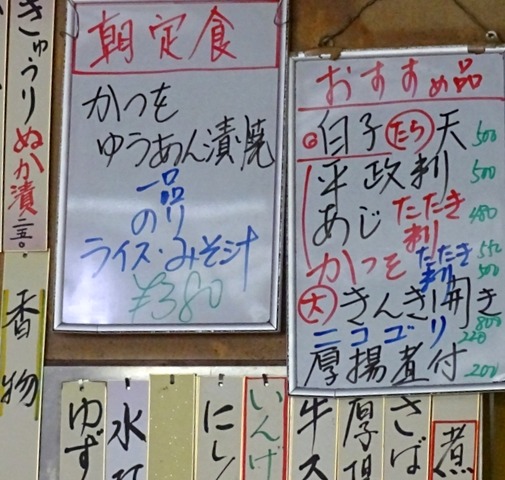 きゅうり ぬか漬 二五〇
香物
朝定食
かつを
ゆうあん漬焼
一品
のり
ライス・みそ汁
¥380
おすすめ品
白子 たら 天 500
平政刺 500
あじ たたき 刺 480
かつを たたき 刺 550 500
大 きんき開き 800
ニコゴリ 220
厚揚煮付 200
ゆず
水
にし
いんげ
牛ス
厚
さば
煮